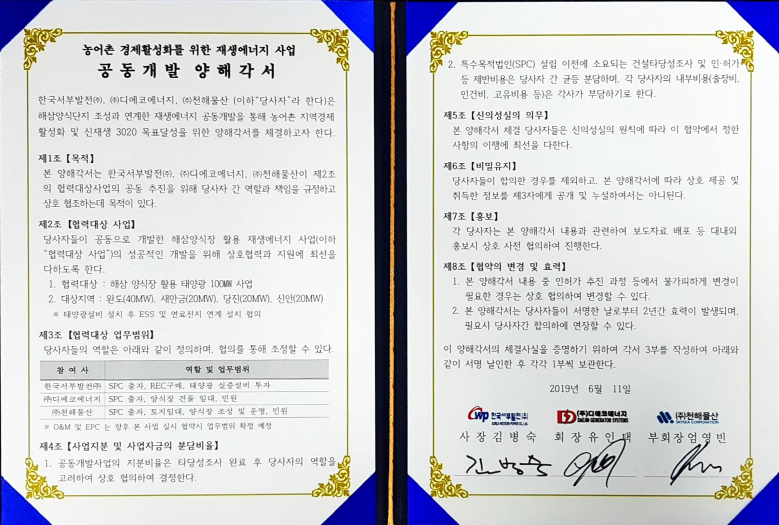 농어촌 경제활성화를 위한 재생에너지 사업
공동개발 양해각서
한국서부발전㈜, ㈜디에코에너지, ㈜천해물산 (이하"당사자"라 한다)은
해삼양식단지 조성과 연계한 재생에너지 공동개발을 통해 농어촌 지역경제
활성화 및 신재생 3020 목표달성을 위한 양해각서를 체결하고자 한다.
제1조【목적】
본 양해각서는 한국서부발전㈜, ㈜디에코에너지, ㈜천해물산이 제2조
의 협력대상사업의 공동 추진을 위해 당사자 간 역할과 책임을 규정하고
상호 협조하는데 목적이 있다.
제2조【협력대상 사업】
당사자들이 공동으로 개발한 해삼양식장 활용 재생에너지 사업(이하
"협력대상 사업")의 성공적인 개발을 위해 상호협력과 지원에 최선을
다하도록 한다.
1. 협력대상 : 해삼 양식장 활용 태양광 100MW 사업
2. 대상지역 : 완도(40MW), 새만금(20MW), 당진(20MW), 신안(20MW)
※ 태양광설비 설치 후 ESS 및 연료전지 연계 설치 협의
제3조【협력대상 업무범위】
당사자들의 역할은 아래와 같이 정의하며, 협의를 통해 조정할 수 있다.
참 여 사 역할 및 업무범위
한국서부발전㈜ SPC 출자, REC구매, 태양광 실증설비 투자
㈜디에코에너지 SPC 출자, 양식장 건물 임대, 민원
㈜천해물산 SPC 출자, 토지임대, 양식장 조성 및 운영, 민원
※ O&M 및 EPC 는 향후 본 사업 실시 협약시 업무범위 확정 예정
제4조【사업지분 및 사업자금의 분담비율】
1. 공동개발사업의 지분비율은 타당성조사 완료 후 당사자의 역할을
고려하여 상호 협의하여 결정한다.
2. 특수목적법인(SPC) 설립 이전에 소요되는 건설타당성조사 및 인·허가
등 제반비용은 당사자 간 균등 분담하며, 각 당사자의 내부비용(출장비,
인건비, 고유비용 등)은 각사가 부담하기로 한다.
제5조【신의성실의 의무】
본 양해각서 체결 당사자들은 신의성실의 원칙에 따라 이 협약에서 정한
사항의 이행에 최선을 다한다.
제6조【비밀유지】
당사자들이 합의한 경우를 제외하고, 본 양해각서에 따라 상호 제공 및
취득한 정보를 제3자에게 공개 및 누설하여서는 아니된다.
제7조【홍보】
각 당사자는 본 양해각서 내용과 관련하여 보도자료 배포 등 대내외
홍보시 상호 사전 협의하여 진행한다.
제8조【협약의 변경 및 효력】
1. 본 양해각서 내용 중 인허가 추진 과정 등에서 불가피하게 변경이
필요한 경우는 상호 협의하여 변경할 수 있다.
2. 본 양해각서는 당사자들이 서명한 날로부터 2년간 효력이 발생되며,
필요시 당사자간 합의하에 연장할 수 있다.
이 양해각서의 체결사실을 증명하기 위하여 각서 3부를 작성하여 아래와
같이 서명 날인한 후 각각 1부씩 보관한다.
2019년 6월 11일
WP 한국서부발전(주) (주)디에코에너지 (주)천해물산
KOREA WESTERN POWER CO., Ltd. SKYSEA CORPORATION
사장김병숙 회장유인택 부회장엄영빈